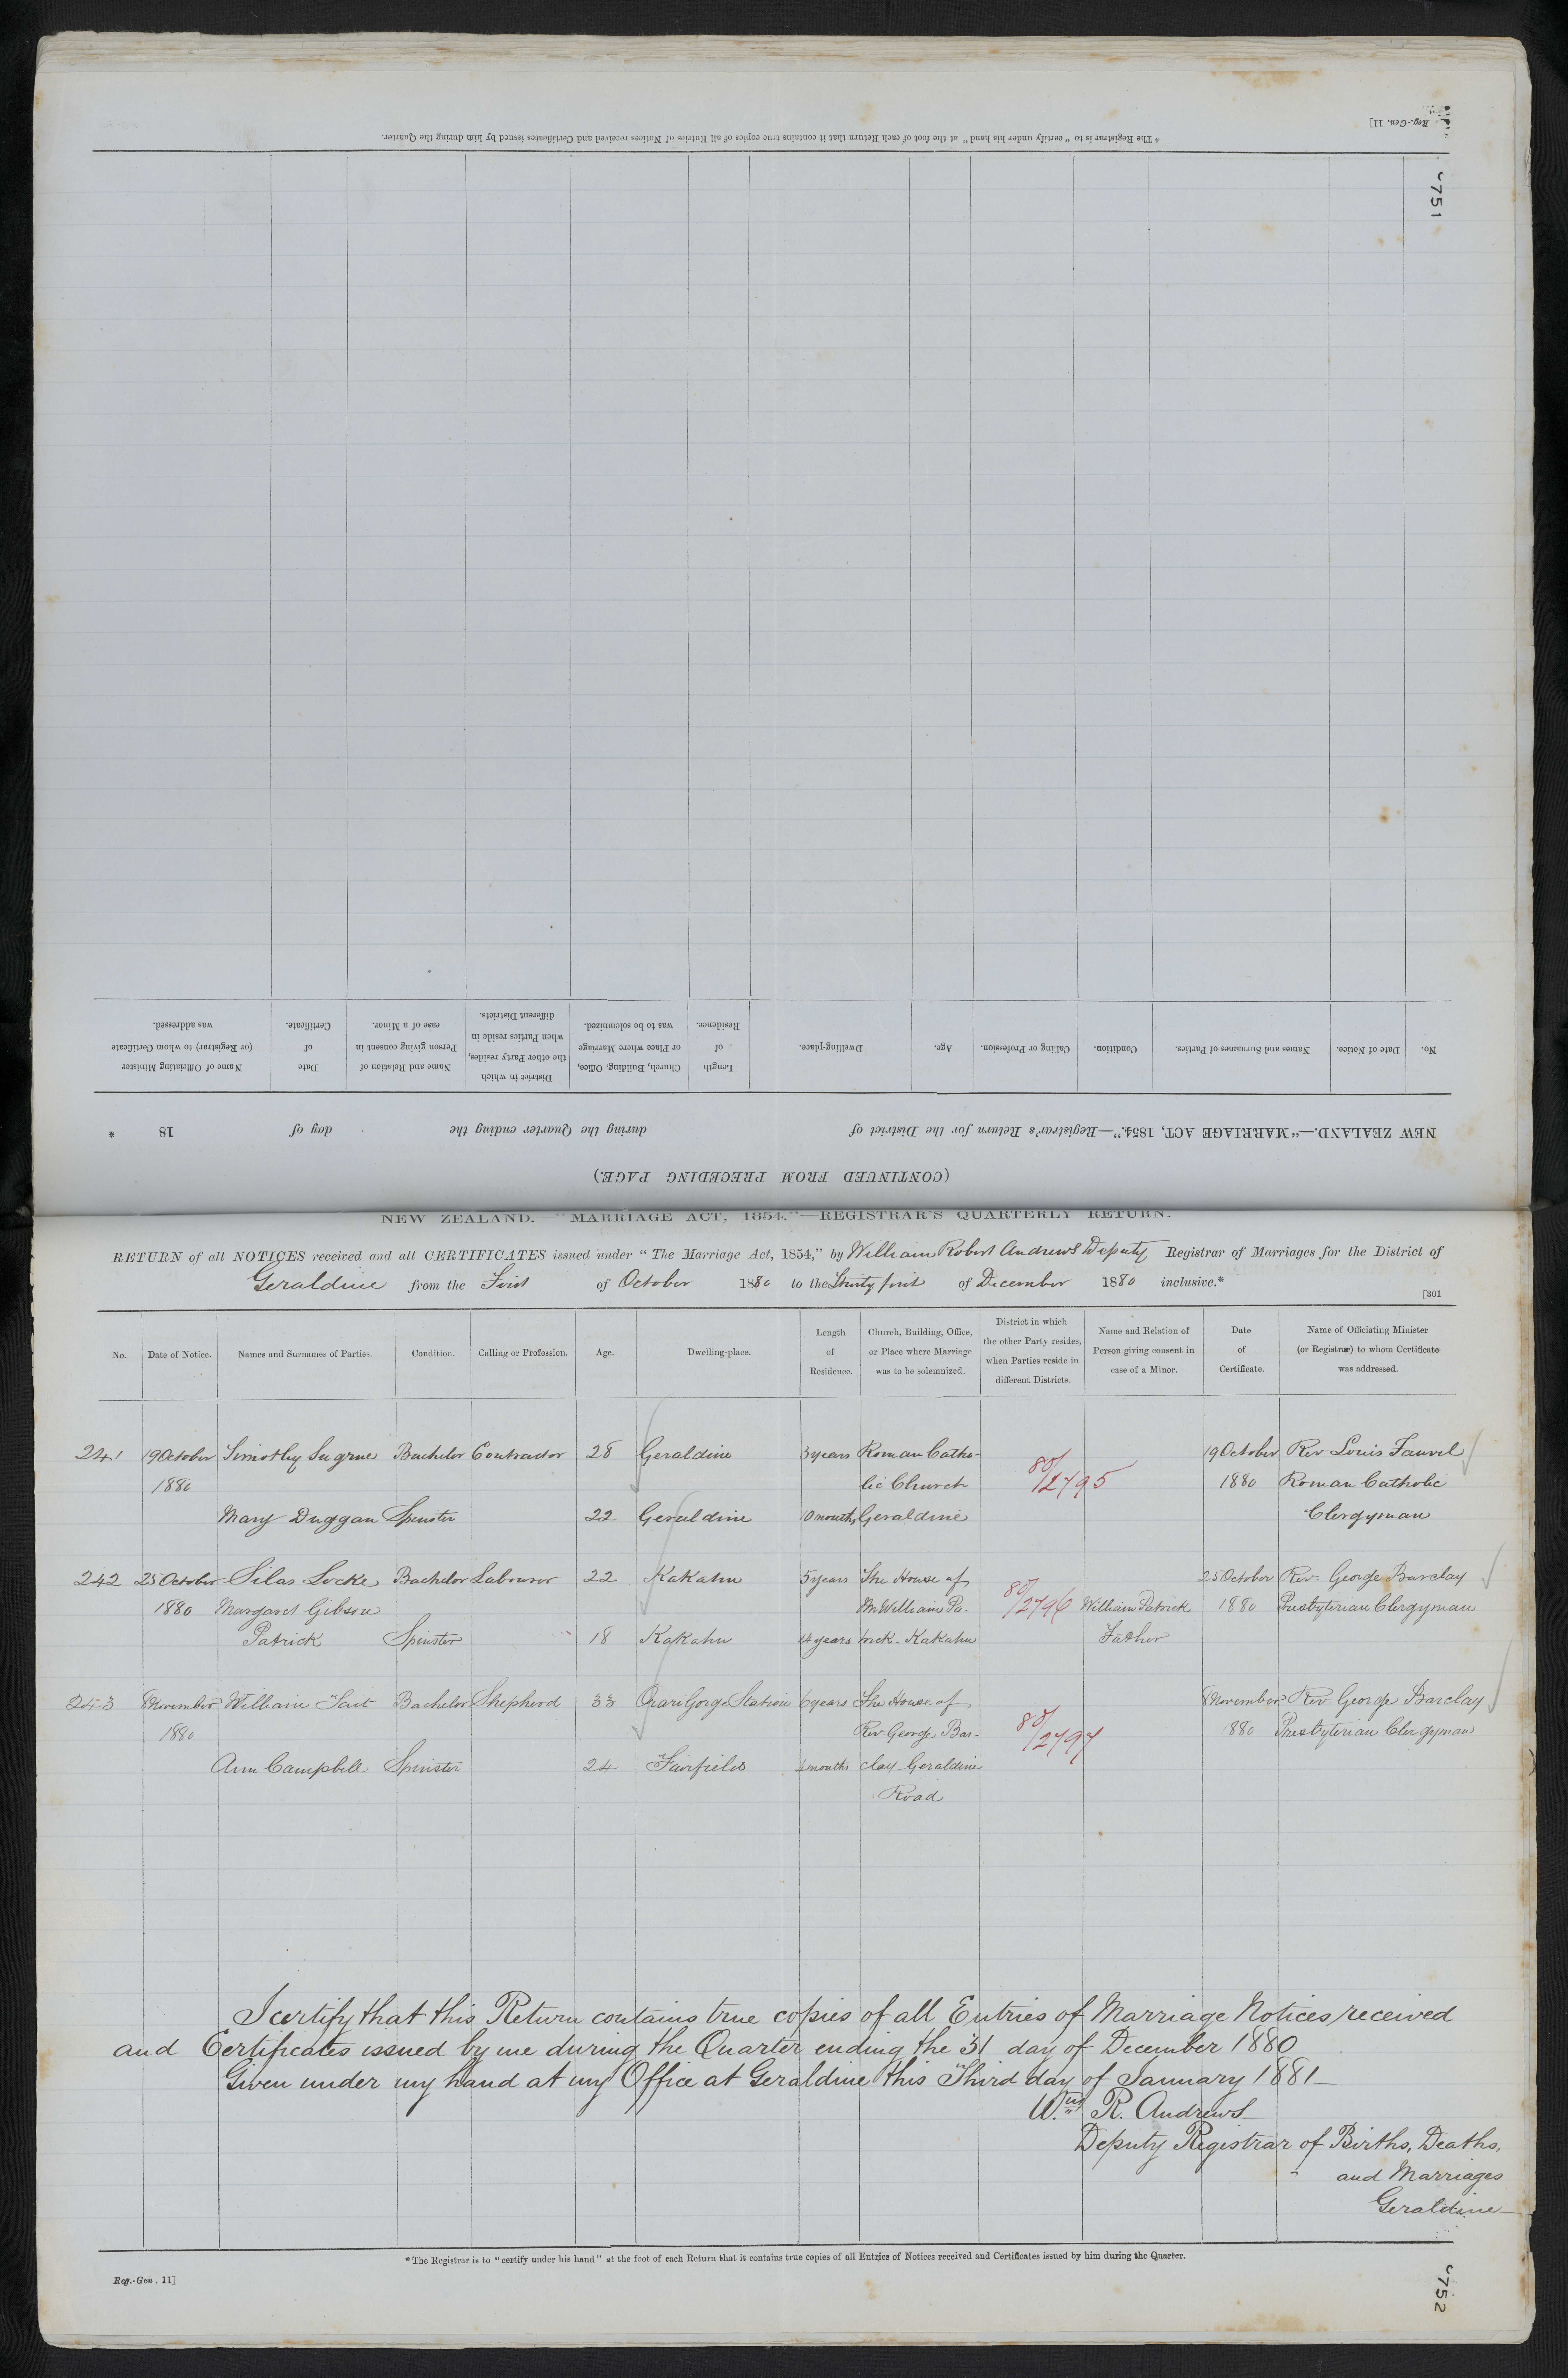 * The Registrar is to "certify under his hand" at the foot of each Return that it contains true copies of all Entries of Notices received and Certificates issued by him during the Quarter.
Reg.-Gen. 11]
751
(CONTINUED FROM PRECEDING PAGE.)
NEW ZEALAND.—"MARRIAGE ACT, 1854."—Registrar's Return for the District of during the Quarter ending the day of 18 *
No. Date of Notice. Names and Surnames of Parties. Condition. Calling or Profession. Age. Dwelling-place. Length of Residence. Church, Building, Office, or Place where Marriage was to be solemnized. District in which the other Party resides, when Parties reside in different Districts. Name and Relation of Person giving consent in case of a Minor. Date of Certificate. Name of Officiating Minister (or Registrar) to whom Certificate was addressed.
NEW ZEALAND.—"MARRIAGE ACT, 1854."—REGISTRAR'S QUARTERLY RETURN.
RETURN of all NOTICES received and all CERTIFICATES issued under "The Marriage Act, 1854," by William Robert Andrews Deputy Registrar of Marriages for the District of
Geraldine from the First of October 1880 to the Thirty first of December 1880 inclusive.*
[301
No. Date of Notice. Names and Surnames of Parties. Condition. Calling or Profession. Age. Dwelling-place. Length of Residence. Church, Building, Office, or Place where Marriage was to be solemnized. District in which the other Party resides, when Parties reside in different Districts. Name and Relation of Person giving consent in case of a Minor. Date of Certificate. Name of Officiating Minister (or Registrar) to whom Certificate was addressed.
241 19 October Timothy Sugrue Bachelor Contractor 28 Geraldine 3 years Roman Catho- 19 October Rev Louis Fauvel
1880 lic Church 80/2795 1880 Roman Catholic
Mary Duggan Spinster 22 Geraldine 10 months Geraldine Clergyman
242 25 October Silas Locke Bachelor Labourer 22 Kakahu 5 years The House of 25 October Rev. George Barclay
1880 Margaret Gibson Mr William Pa- 80/2796 William Patrick 1880 Presbyterian Clergyman
Patrick Spinster 18 Kakahu 14 years trick - Kakahu Father
243 8 November William Tait Bachelor Shepherd 33 Orari Gorge Station 6 years The House of 8 November Rev. George Barclay
1880 Rev. George Bar- 80/2797 1880 Presbyterian Clergyman
Ann Campbell Spinster 24 Fairfield months clay Geraldine
Road
I certify that this Return contains true copies of all Entries of Marriage Notices received
and Certificates issued by me during the Quarter ending the 31 day of December 1880
Given under my hand at my Office at Geraldine this Third day of January 1881
Wm. R. Andrews
Deputy Registrar of Births, Deaths,
and Marriages
Geraldine
* The Registrar is to "certify under his hand" at the foot of each Return that it contains true copies of all Entries of Notices received and Certificates issued by him during the Quarter.
Reg.-Gen. 11]
752